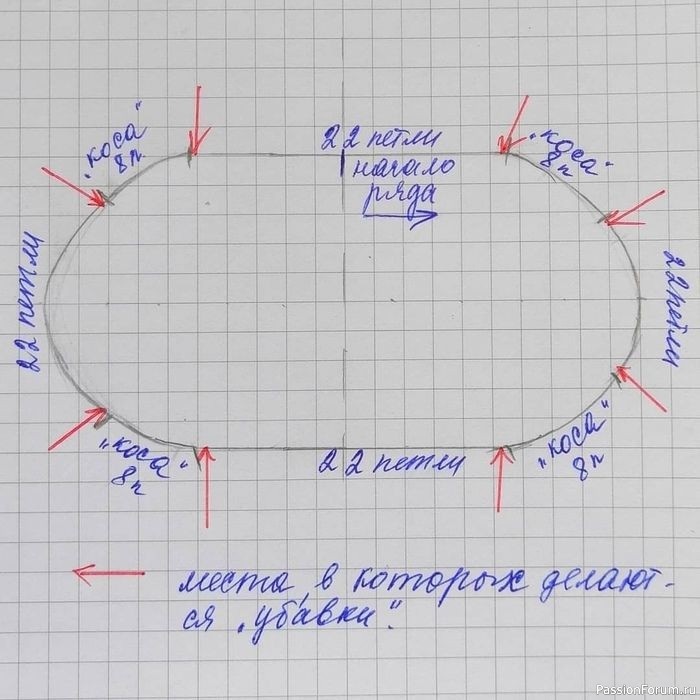 „коса"
8п.
22 петли
начало
ряда
„коса"
8п
22 петли
22 петли
„коса"
8п
22 петли
„коса"
8п
места, в которых делают-
ся „убавки".
PassionForum.ru